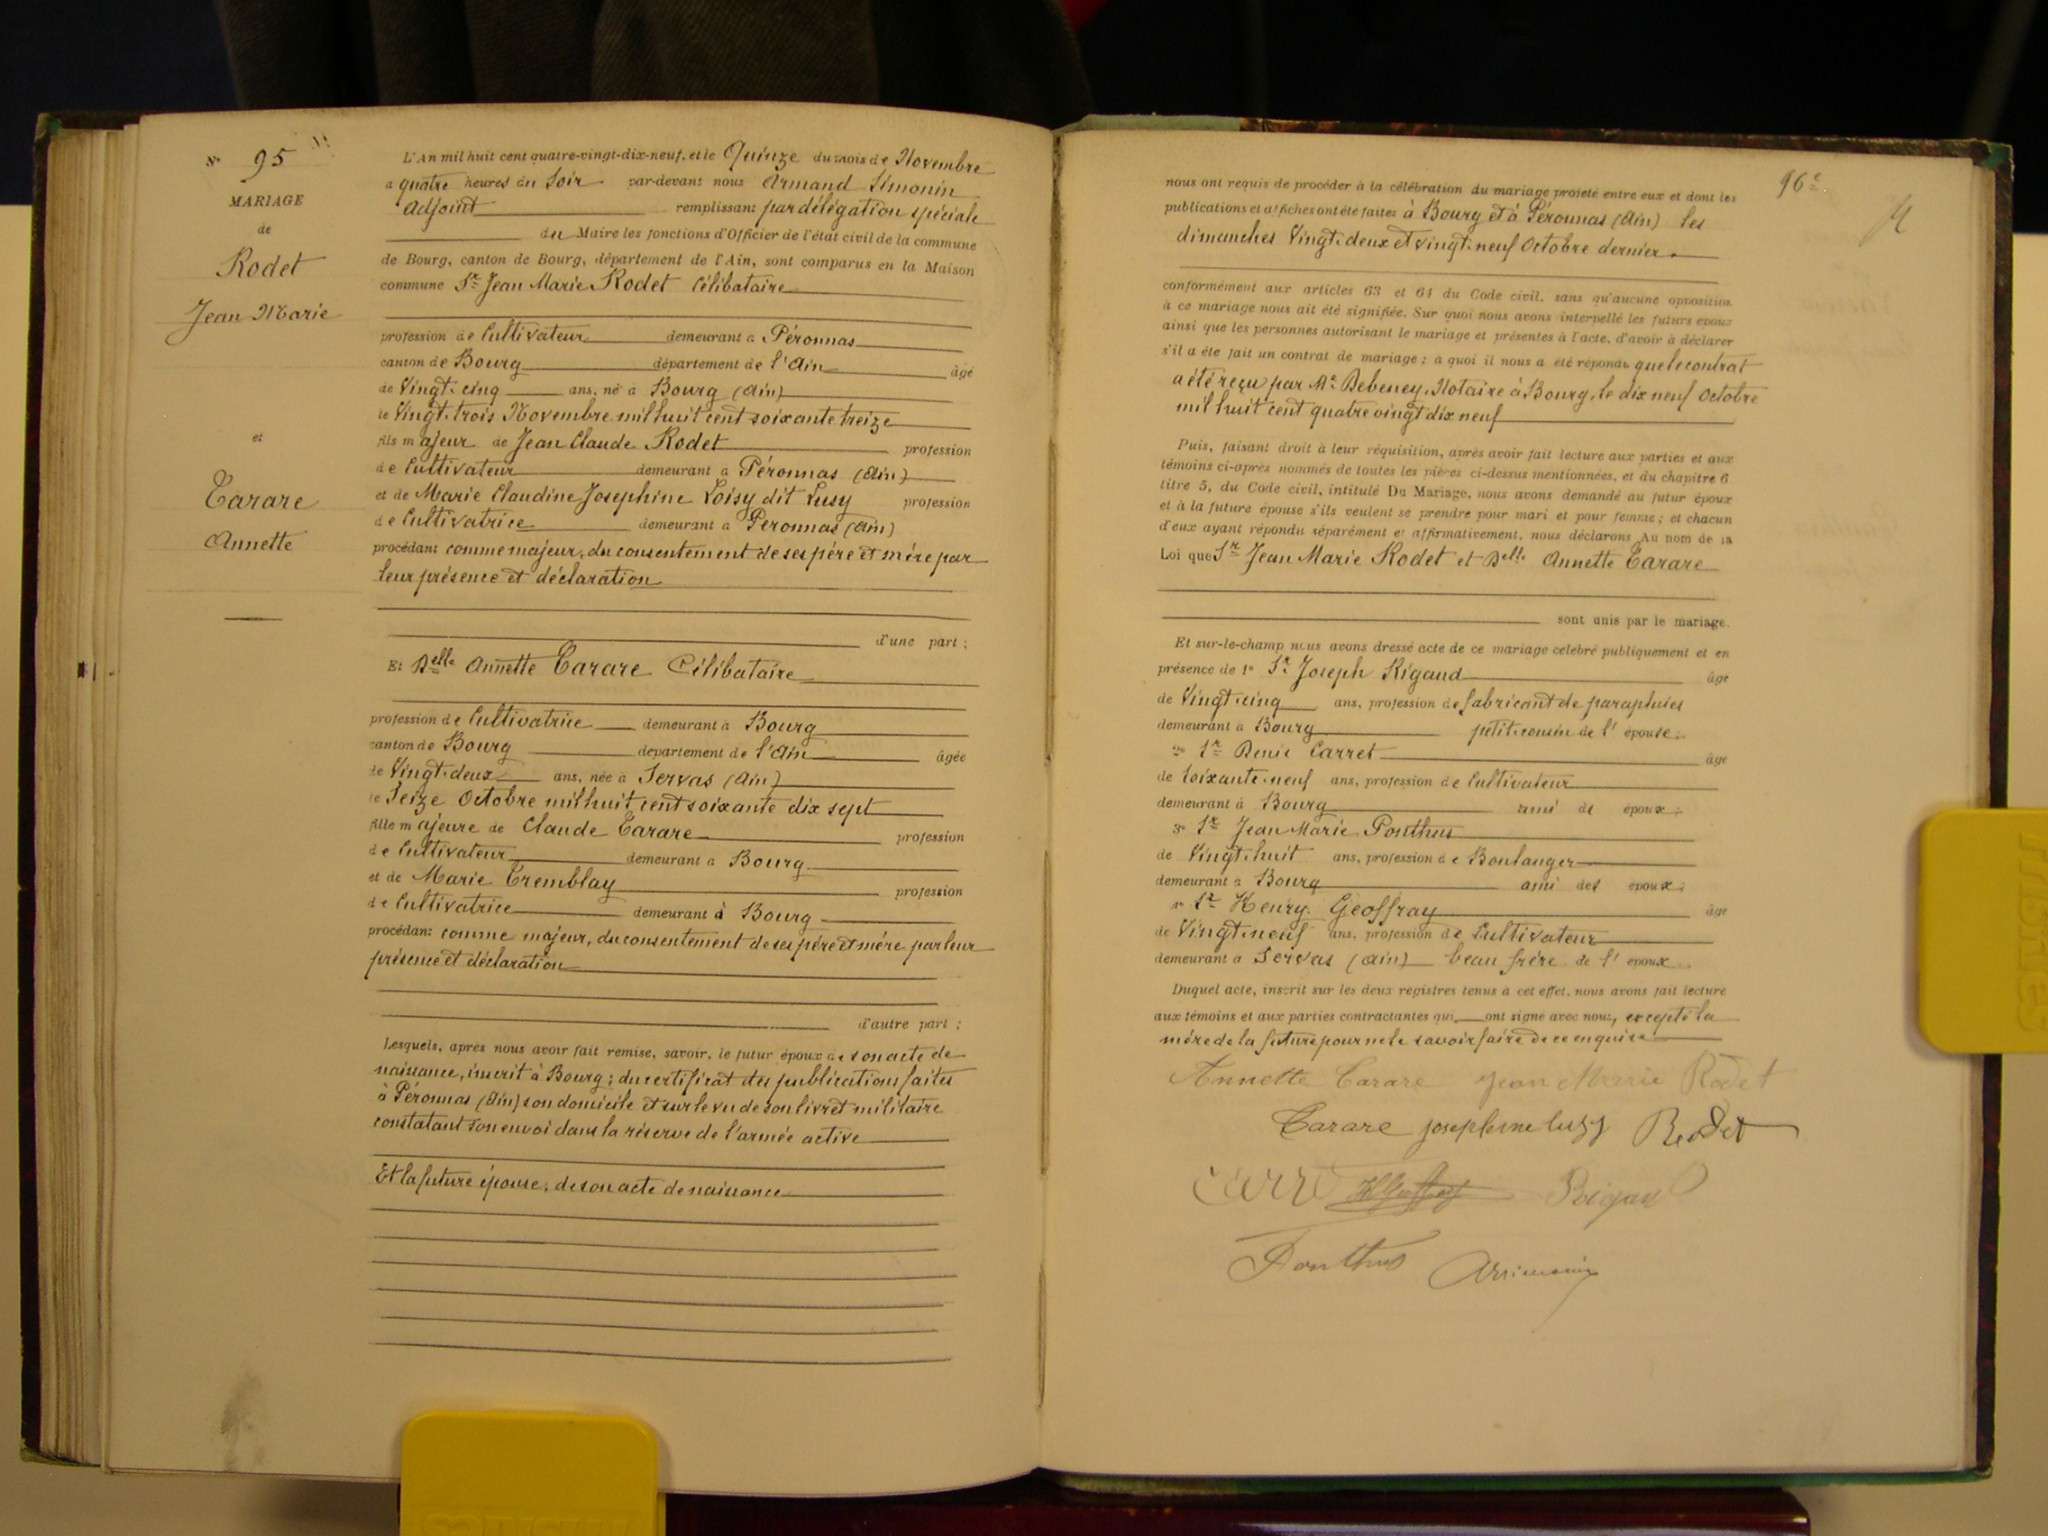 N° 95
MARIAGE
de
Rodet
Jean Marie
et
Carare
Annette
L'An mil huit cent quatre-vingt-dix-neuf, et le Quinze du mois de Novembre
a quatre heures du Soir par-devant nous Armand Simonin
Adjoint remplissant par délégation spéciale
du Maire les fonctions d'Officier de l'état civil de la commune
de Bourg, canton de Bourg, département de l'Ain, sont comparus en la Maison
commune Sr Jean Marie Rodet Célibataire
profession de Cultivateur demeurant à Péronnas
canton de Bourg département de l'Ain âgé
de Vingt-cinq ans, né à Bourg (Ain)
le Vingt-trois Novembre mil huit cent soixante treize
fils majeur de Jean Claude Rodet profession
de Cultivateur demeurant à Péronnas (Ain)
et de Marie Claudine Josephine Loisy dit Lusy profession
de Cultivatrice demeurant à Péronnas (Ain)
procédant comme majeur, du consentement de ses père et mère par
leur présence et déclaration
d'une part ;
Et Delle Annette Carare Célibataire
profession de Cultivatrice demeurant à Bourg
canton de Bourg département de l'Ain âgée
de Vingt-deux ans, née à Servas (Ain)
le Seize Octobre mil huit cent soixante dix sept
fille majeure de Claude Carare profession
de Cultivateur demeurant à Bourg
et de Marie Tremblay profession
de Cultivatrice demeurant à Bourg
procédant comme majeur, du consentement de ses père et mère par leur
présence et déclaration
d'autre part ;
Lesquels, après nous avoir fait remise, savoir, le futur époux de son acte de
naissance, inscrit à Bourg ; du certificat des publications faites
à Péronnas (Ain) son domicile et sur le vu de son livret militaire
constatant son envoi dans la réserve de l'armée active
Et la future épouse, de son acte de naissance
96e
nous ont requis de procéder à la célébration du mariage projeté entre eux et dont les
publications et affiches ont été faites à Bourg et à Péronnas (Ain) les
dimanches Vingt-deux et vingt-neuf Octobre dernier
conformément aux articles 63 et 64 du Code civil, sans qu'aucune opposition
à ce mariage nous ait été signifiée. Sur quoi nous avons interpellé les futurs époux
ainsi que les personnes autorisant le mariage et présentes à l'acte, d'avoir à déclarer
s'il a été fait un contrat de mariage ; à quoi il nous a été répondu que le contrat
a été reçu par Me Debeney, Notaire à Bourg, le dix neuf Octobre
mil huit cent quatre vingt dix neuf
Puis, faisant droit à leur réquisition, après avoir fait lecture aux parties et aux
témoins ci-après nommés de toutes les pièces ci-dessus mentionnées, et du chapitre 6
titre 5, du Code civil, intitulé Du Mariage, nous avons demandé au futur époux
et à la future épouse s'ils veulent se prendre pour mari et pour femme ; et chacun
d'eux ayant répondu séparément et affirmativement, nous déclarons Au nom de la
Loi que Sr Jean Marie Rodet et Delle Annette Carare
sont unis par le mariage.
Et sur-le-champ nous avons dressé acte de ce mariage célébré publiquement et en
présence de 1° Sr Joseph Rigaud âgé
de Vingt-cinq ans, profession de fabricant de parapluies
demeurant à Bourg petit-cousin de l'épouse ;
2° Sr Denis Carret âgé
de soixante-neuf ans, profession de Cultivateur
demeurant à Bourg ami des époux ;
3° Sr Jean Marie Ponthus
de Vingt-huit ans, profession de Boulanger
demeurant à Bourg ami des époux ;
Sr Henry Geoffray âgé
de Vingt-neuf ans, profession de Cultivateur
demeurant à Servas (Ain) beau frère de l'époux
Duquel acte, inscrit sur les deux registres tenus à cet effet, nous avons fait lecture
aux témoins et aux parties contractantes qui ont signé avec nous, excepté la
mère de la future pour ne le savoir faire de ce enquise
Annette Carare Jean Marie Rodet
Carare Josephine Lusy Rodet
Carret Rigaud
Ponthus